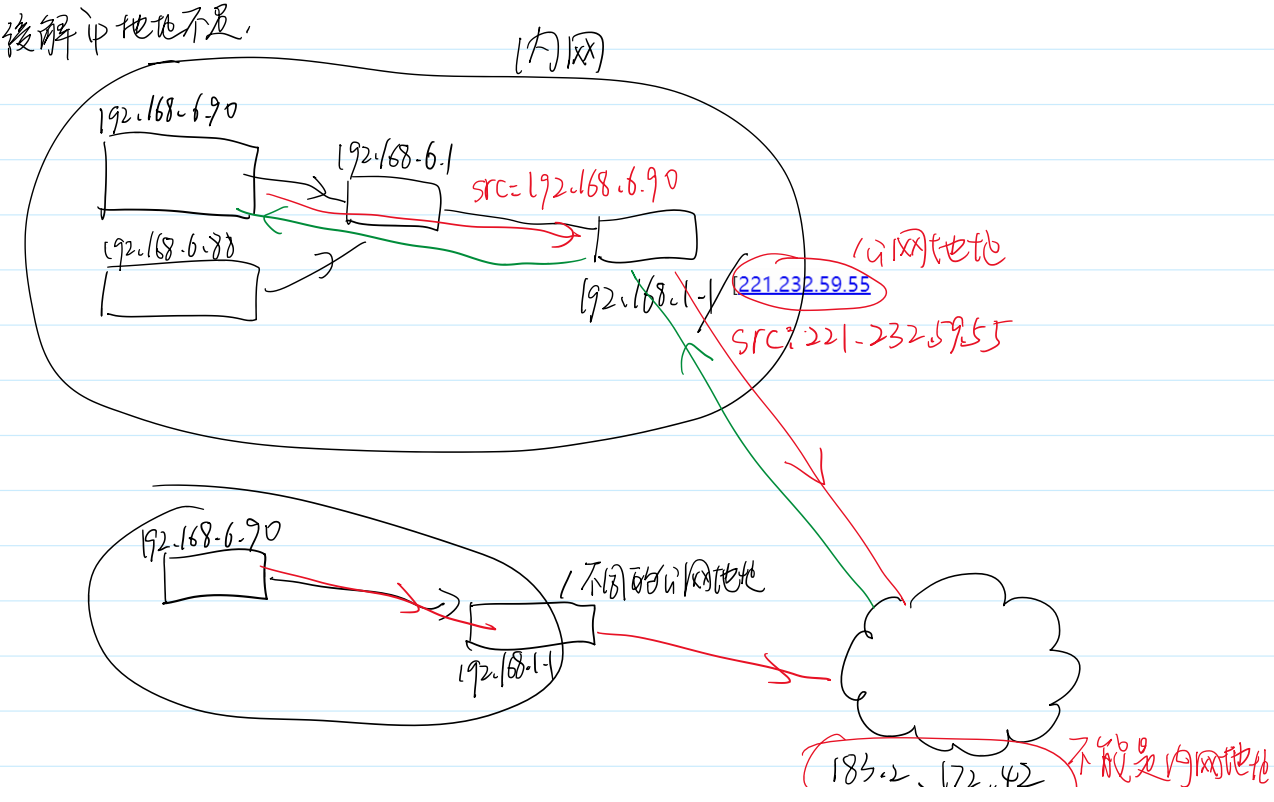 缓解ip地址不足,
内网
192.168.6.90
192.168.6.1
src=192.168.6.90
192.168.6.88
公网地址
192.168.1.1
221.232.59.55
src:221.232.59.55
192.168.6.90
不同的公网地址
192.168.1.1
不能是内网地址
183.2.172.42